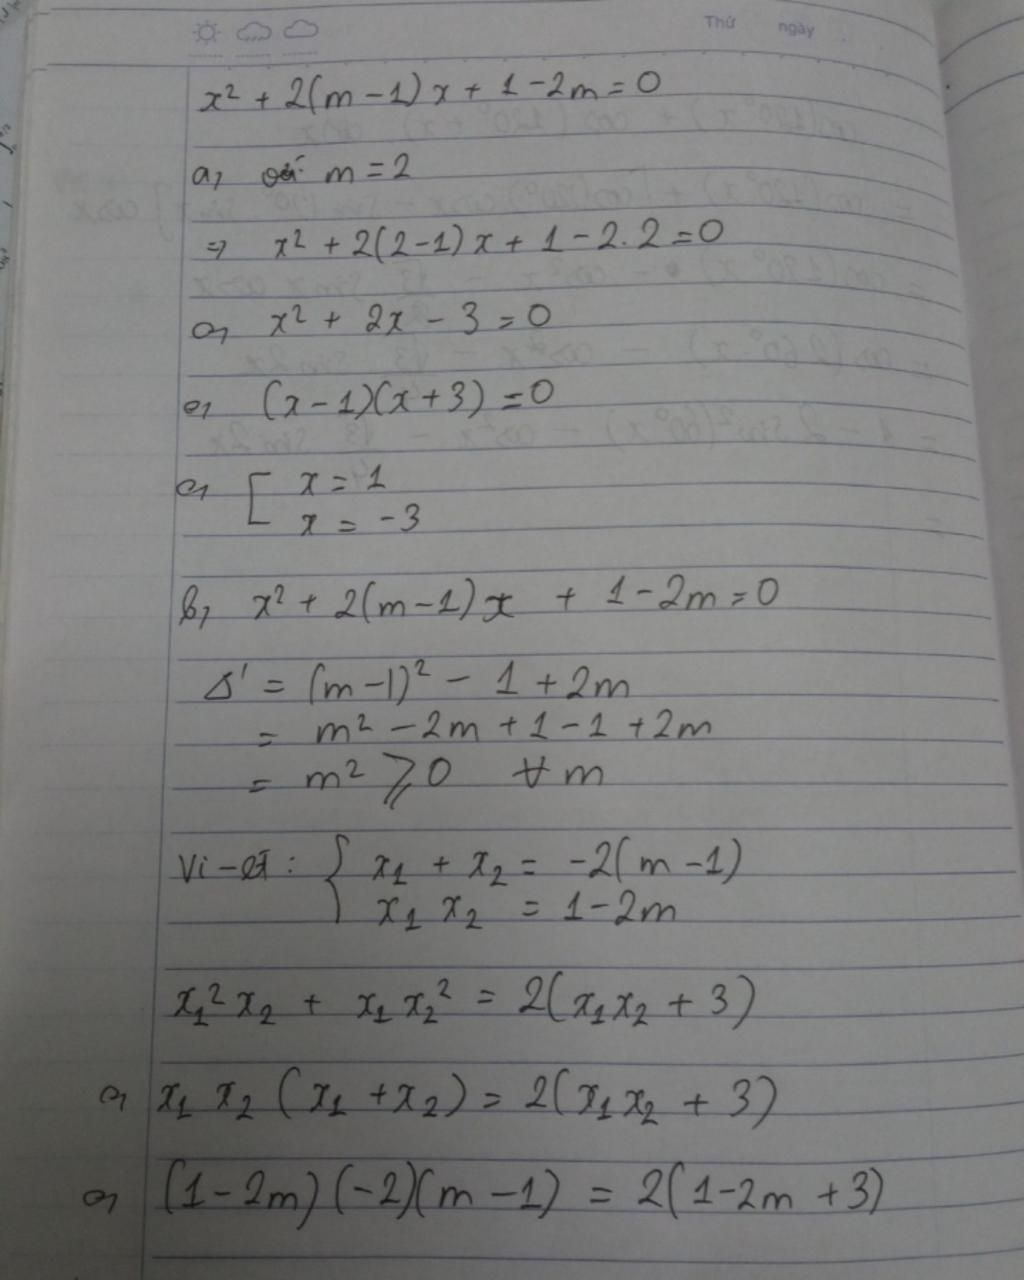 Thứ ngày
x² + 2(m - 1)x + 1 - 2m = 0
a, với m = 2
=> x² + 2(2-1)x + 1 - 2.2 = 0
<=> x² + 2x - 3 = 0
<=> (x - 1)(x + 3) = 0
<=> [ x = 1
x = -3
b, x² + 2(m-1)x + 1 - 2m = 0
Δ' = (m-1)² - 1 + 2m
= m² - 2m + 1 - 1 + 2m
= m² ⩾ 0 ∀ m
Vi-ét : { x₁ + x₂ = -2(m - 1)
x₁ x₂ = 1 - 2m
x₁² x₂ + x₁ x₂² = 2(x₁x₂ + 3)
<=> x₁ x₂ (x₁ + x₂) = 2(x₁x₂ + 3)
<=> (1 - 2m)(-2)(m - 1) = 2(1-2m + 3)